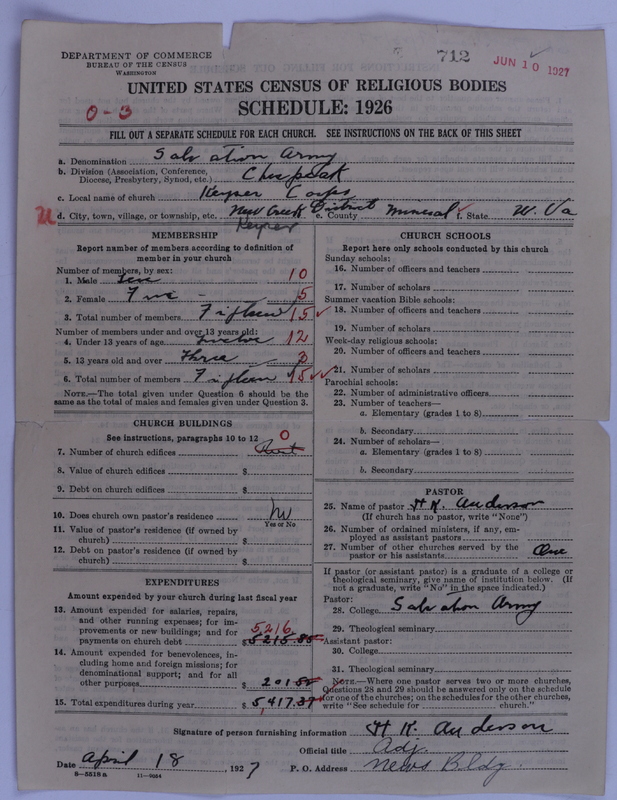 DEPARTMENT OF COMMERCE
BUREAU OF THE CENSUS
WASHINGTON
712
JUN 10 1927
UNITED STATES CENSUS OF RELIGIOUS BODIES
SCHEDULE: 1926
0-3
FILL OUT A SEPARATE SCHEDULE FOR EACH CHURCH. SEE INSTRUCTIONS ON THE BACK OF THIS SHEET
a. Denomination Salvation Army
b. Division (Association, Conference, Diocese, Presbytery, Synod, etc.) Chespeak
c. Local name of church Keyser Corps
d. City, town, village, or township, etc. New Creek District e. County Mineral f. State W. Va
Keyser
MEMBERSHIP
Report number of members according to definition of member in your church
Number of members, by sex:
1. Male Ten 10
2. Female Five 5
3. Total number of members Fifteen 15
Number of members under and over 13 years old:
4. Under 13 years of age Twelve 12
5. 13 years old and over Three 3
6. Total number of members Fifteen 15
NOTE.—The total given under Question 6 should be the same as the total of males and females given under Question 3.
CHURCH BUILDINGS
See instructions, paragraphs 10 to 12
7. Number of church edifices 0
8. Value of church edifices $
9. Debt on church edifices $
10. Does church own pastor's residence No
Yes or No
11. Value of pastor's residence (if owned by church) $
12. Debt on pastor's residence (if owned by church) $
EXPENDITURES
Amount expended by your church during last fiscal year
13. Amount expended for salaries, repairs, and other running expenses; for improvements or new buildings; and for payments on church debt $ 5215.85
5216
14. Amount expended for benevolences, including home and foreign missions; for denominational support; and for all other purposes $ 201.52
15. Total expenditures during year $ 5,417.37
CHURCH SCHOOLS
Report here only schools conducted by this church
Sunday schools:
16. Number of officers and teachers
17. Number of scholars
Summer vacation Bible schools:
18. Number of officers and teachers
19. Number of scholars
Week-day religious schools:
20. Number of officers and teachers
21. Number of scholars
Parochial schools:
22. Number of administrative officers
23. Number of teachers—
a. Elementary (grades 1 to 8)
b. Secondary
24. Number of scholars—
a. Elementary (grades 1 to 8)
b. Secondary
PASTOR
25. Name of pastor H K. Anderson
(If church has no pastor, write "None")
26. Number of ordained ministers, if any, employed as assistant pastors
27. Number of other churches served by the pastor or his assistants One
If pastor (or assistant pastor) is a graduate of a college or theological seminary, give name of institution below. (If not a graduate, write "No" in the space indicated.)
Pastor:
28. College Salvation Army
29. Theological seminary
Assistant pastor:
30. College
31. Theological seminary
NOTE.—Where one pastor serves two or more churches, Questions 28 and 29 should be answered only on the schedule for one of the churches; on the schedules for the other churches, write "See schedule for church."
Signature of person furnishing information H K. Anderson
Official title Adj.
Date April 18, 1927 P. O. Address News Bldg.
8—5518 a 11—9054